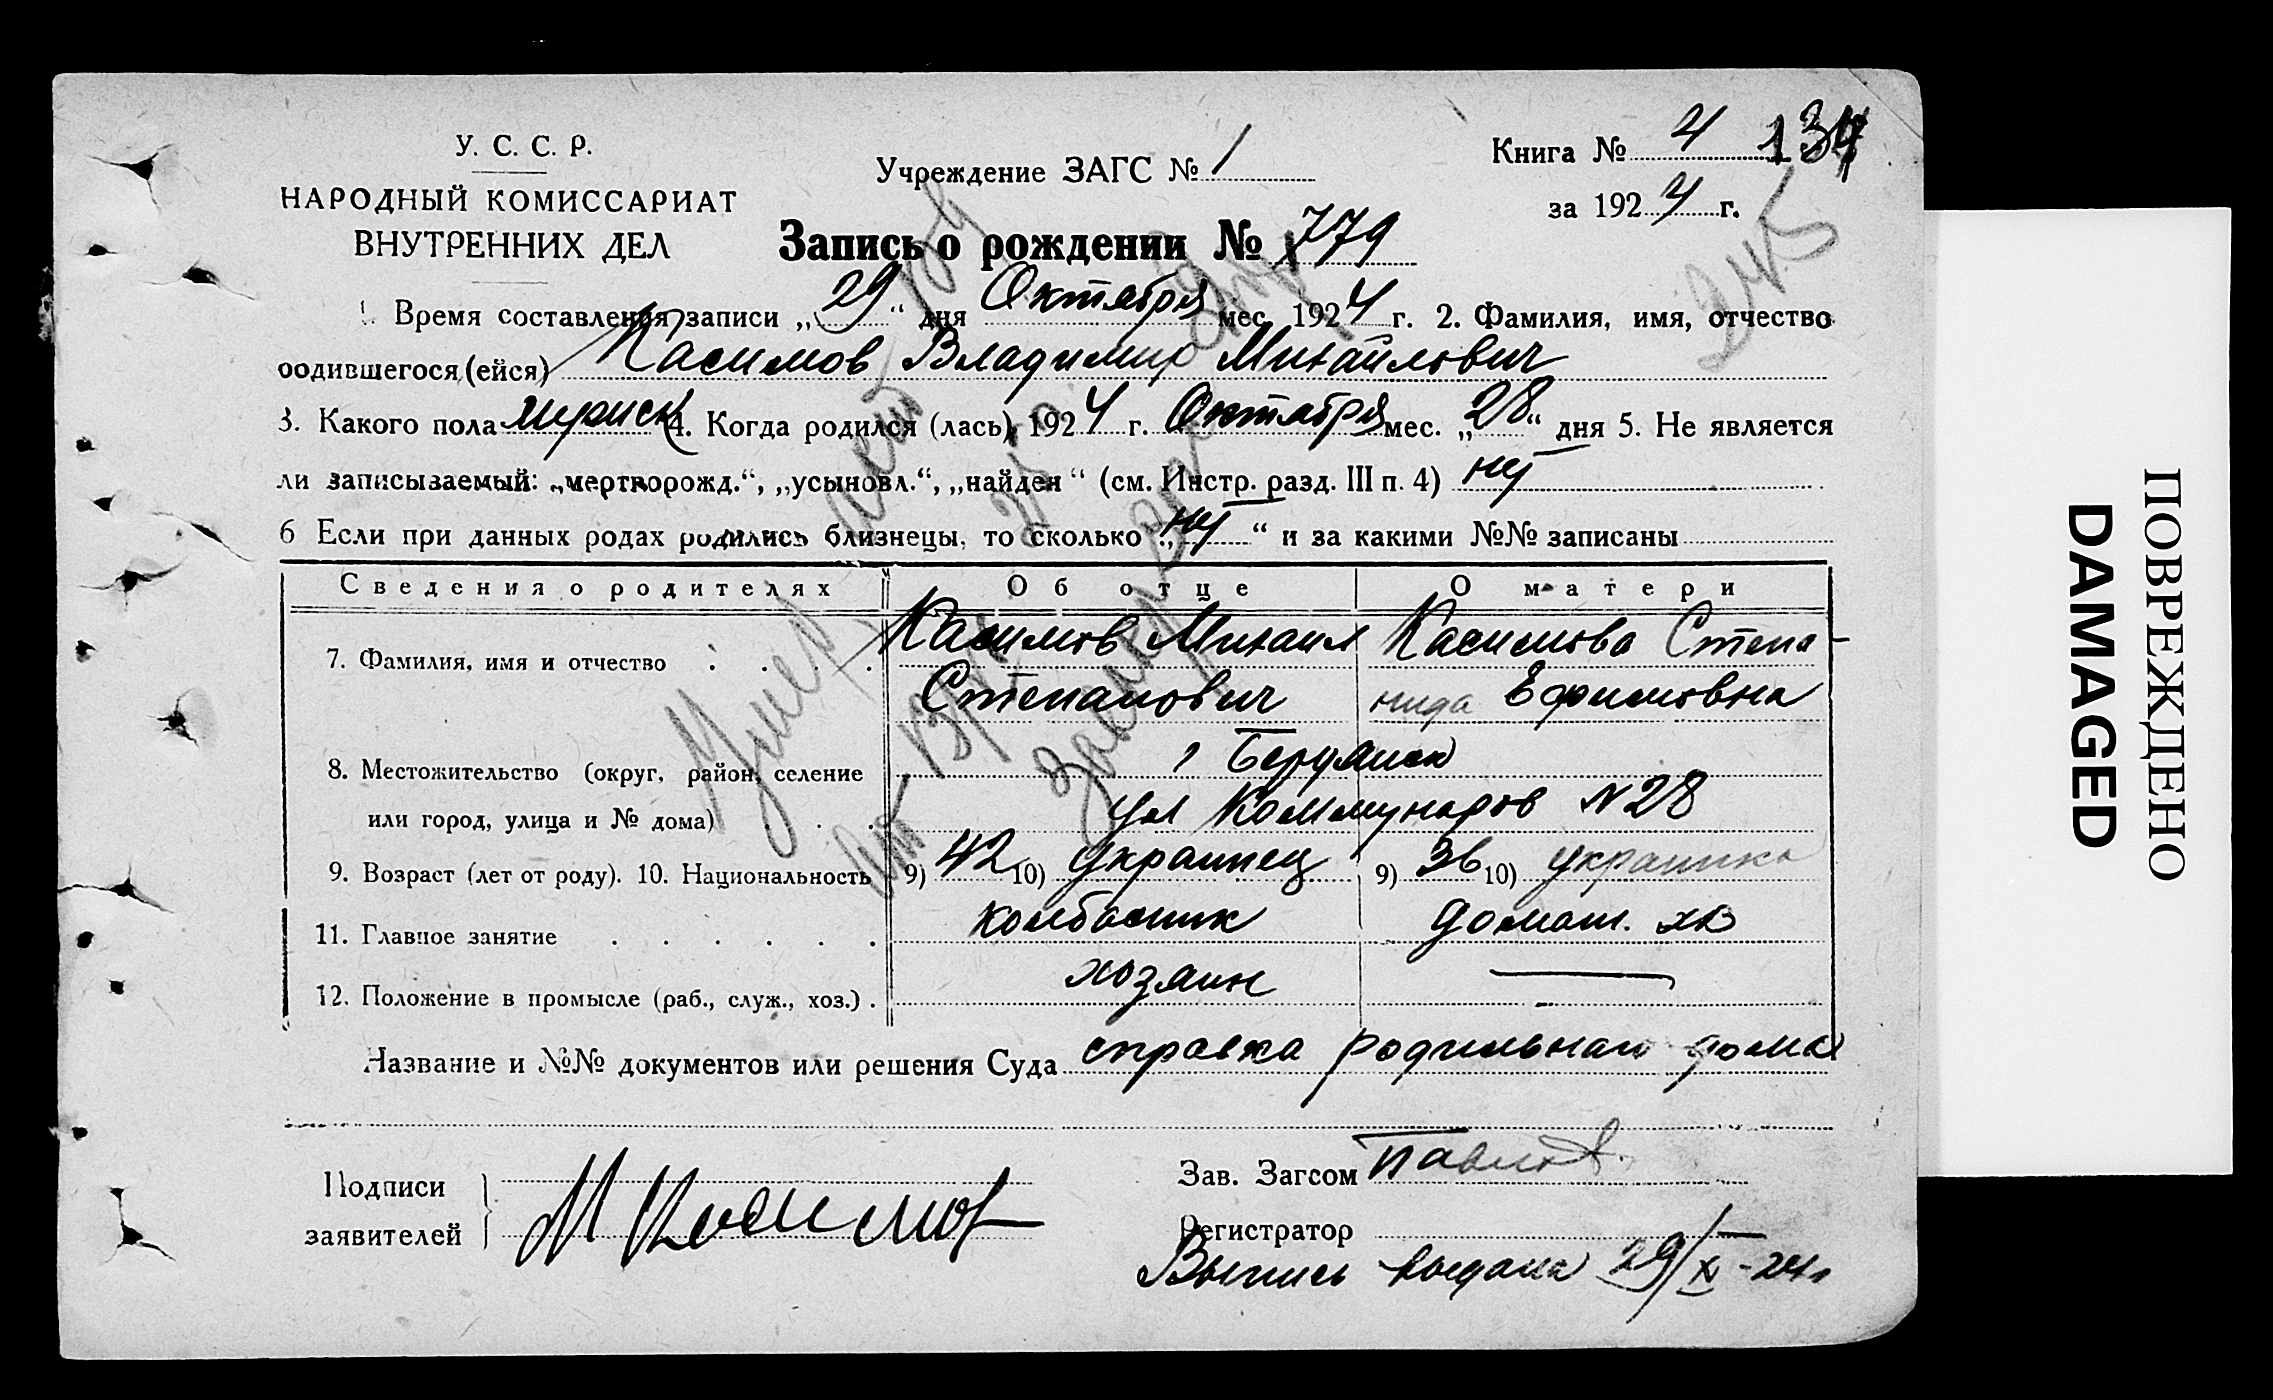 У. С. С. Р.
НАРОДНЫЙ КОМИССАРИАТ
ВНУТРЕННИХ ДЕЛ
Учреждение ЗАГС № 1
Книга № 4
134
за 1924 г.
Запись о рождении № 779
1. Время составления записи „29“ дня Октября мес. 1924 г. 2. Фамилия, имя, отчество
родившегося (ейся) Касимов Владимир Михайлович
3. Какого пола мужск 4. Когда родился (лась) 1924 г. Октября мес. „28“ дня 5. Не является
ли записываемый: „мертворожд.“, „усыновл.“, „найден“ (см. Инстр. разд. III п. 4) нет
6 Если при данных родах родились близнецы, то сколько „нет“ и за какими №№ записаны
Сведения о родителях Об отце О матери
7. Фамилия, имя и отчество Касимов Михаил Касимова Степа-
Степанович нида Ефимовна
8. Местожительство (округ, район, селение г Бердянск
или город, улица и № дома) ул Коммунаров N 28
9. Возраст (лет от роду). 10. Национальность 9) 42 10) украинец 9) 36 10) украинка
11. Главное занятие колбасник домаш. хв
12. Положение в промысле (раб., служ., хоз.) хозяин —
Название и №№ документов или решения Суда справка родильного дома
Подписи
заявителей
М Касимов
Зав. Загсом Павлов
Регистратор
Выпись выдана 29/X-24г
Умер
ПОВРЕЖДЕНО
DAMAGED